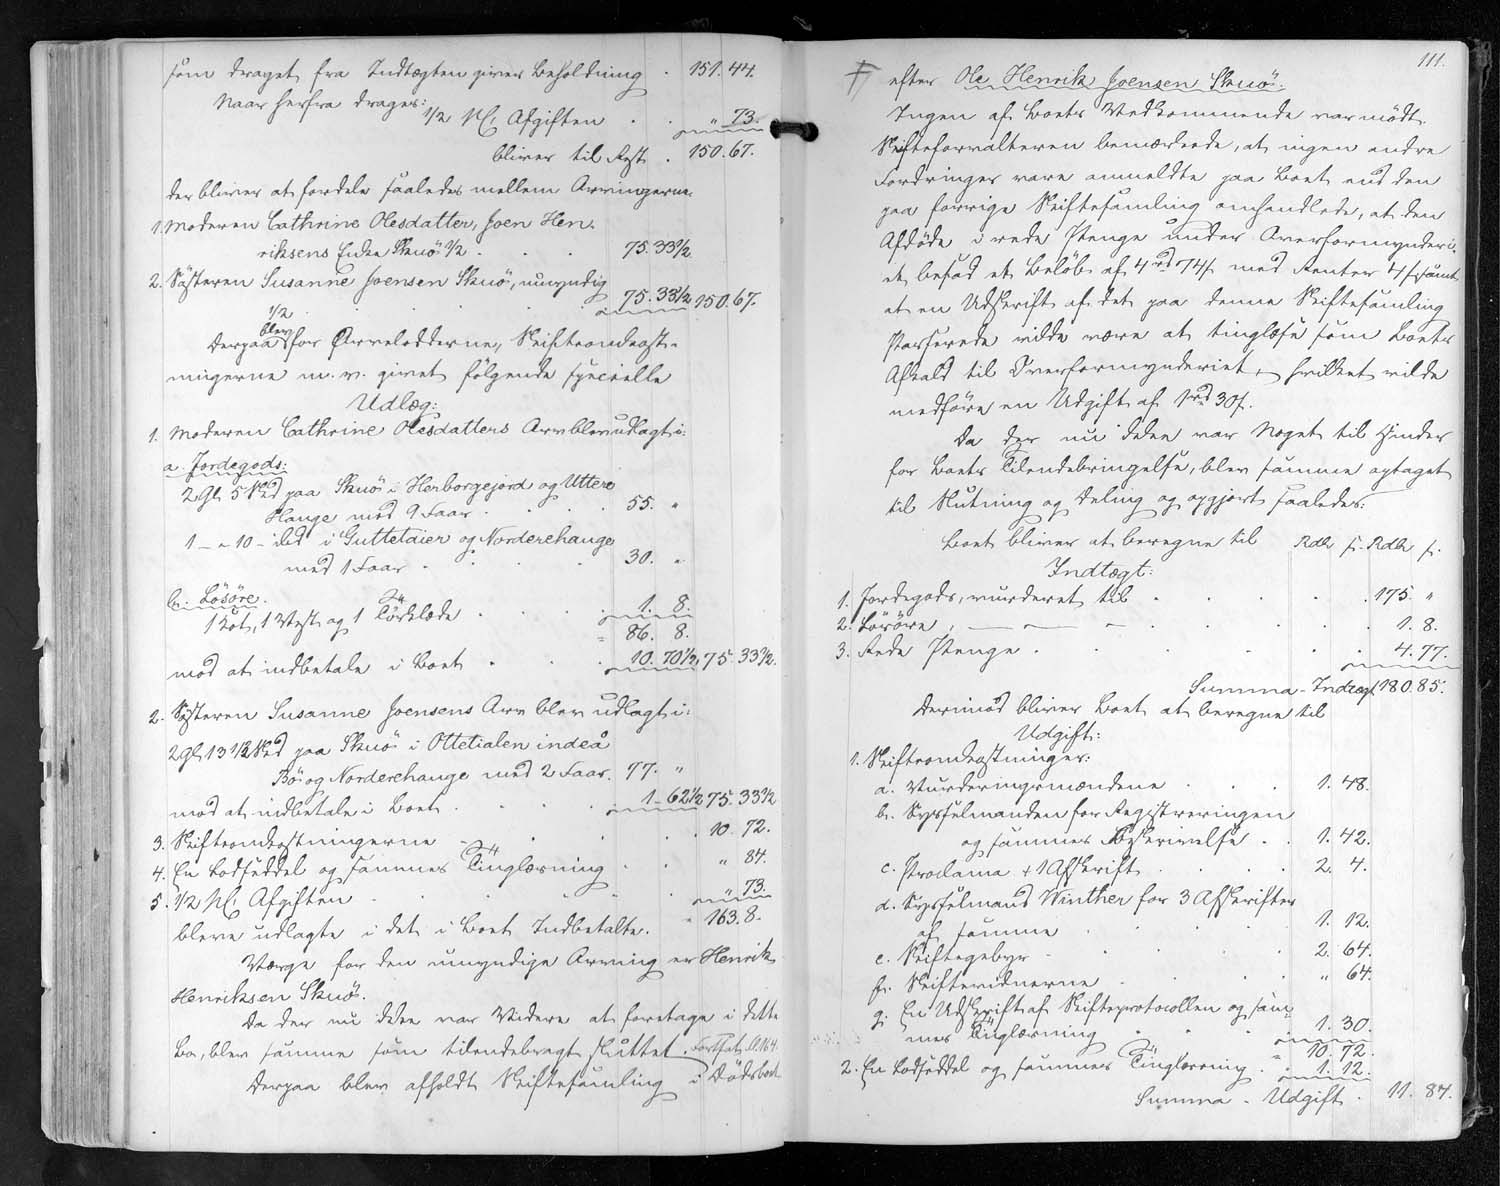 som draget fra Indtægten giver Beholdning . 151. 44.
Naar herfra drages:
1/2 pCt Afgiften . . " 73.
bliver til Rest . 150. 67.
der bliver at fordele saaledes mellem Arvingerne.
1. Moderen Cathrine Olesdatter, Joen Hen-
riksens Enke Skuö 1/2 . . . 75. 33 1/2
2. Systeren Susanne Joensen Skuö, umyndig
1/2 . . . 75. 33 1/2 150. 67.
Derpaa blev for Arvelodderne, Skifteomkost-
ningerne m. v. givet følgende specielle
Udlæg:
1. Moderen Cathrine Olesdatters Arv blev udlagt i:
a. Jordegods:
2 Gl 5 Skd paa Skuö i Herborgejord og Uttere
Hauge med 9 Faar . . . . 55. "
1 – " 10 – ibd i Guttetaier og Norderehauge
med 1 Faar . . . . 30. "
b. Lösöre.
1 Kot, 1 Vest og 1 Törklæde . . . 1. 8.
" 86. 8.
mod at indbetale i Boet . . . 10. 70 1/2 75. 33 1/2.
2. Systeren Susanne Joensens Arv blev udlagt i:
2 Gl 13 1/2 Skd paa Skuö i Ottetialen indeå
Bö og Norderehauge med 2 Faar. 77. "
mod at indbetale i Boet . . . 1 – 62 1/2 75. 33 1/2
3. Skifteomkostningerne . . . . 10. 72.
4. En Lodseddel og sammes Tinglæsning . . " 84.
5. 1/2 pCt Afgiften . . . . " 73.
bleve udlagte i det i Boet Indbetalte. " 163. 8.
Værge for den umyndige Arving er Henrik
Henriksen Skuö.
Da der nu ikke var Videre at foretage i dette
Bo, blev samme som tilendebragt sluttet. Fortsat S. 164.
Derpaa blev afholdt Skiftesamling i Dödsboet
111.
efter Ole Henrik Joensen Skuö.
Ingen af Boets Vedkommende var mödt.
Skifteforvalteren bemærkede, at ingen andre
Fordringer vare anmeldte paa Boet end den
paa forrige Skiftesamling omhandlede, at den
Afdöde i rede Penge under Overformynderi-
et besad et Belöb af 4 rd 74 s. med Renter 4 s. samt
at en Udskrift af det paa denne Skiftesamling
Passerede vilde være at tinglæse som Boets
Afkald til Overformynderiet, hvilket vilde
medföre en Udgift af 1 rd 30 s.
Da der nu ikke var Noget til Hinder
for Boets Tilendebringelse, blev samme optaget
til Slutning og Deling og opgjort saaledes:
Boet bliver at beregne til Rdlr s. Rdlr s.
Indtægt:
1. Jordegods, vurderet til . . . . 175. "
2. Lösöre, — — — . . . . 1. 8.
3. Rede Penge . . . . . 4. 77.
Summa - Indtægt 180. 85.
Derimod bliver Boet at beregne til
Udgift:
1. Skifteomkostninger:
a. Vurderingsmændene . . . 1. 48.
b. Sysselmanden for Registreringen
og sammes Beskrivelse . . 1. 42.
c. Proclama + 1 Afskrift . . . 2. 4.
d. Sysselmand Winther for 3 Afskrifter
af samme . . . . 1. 12.
e. Skiftegebyr . . . . 2. 64.
f. Skiftevidnerne . . . . " 64.
g. En Udskrift af Skifteprotocollen og sam-
mes Tinglæsning . . . . 1. 30.
" 10. 72.
2. En Lodseddel og sammes Tinglæsning . . 1. 12.
Summa - Udgift . 11. 84.